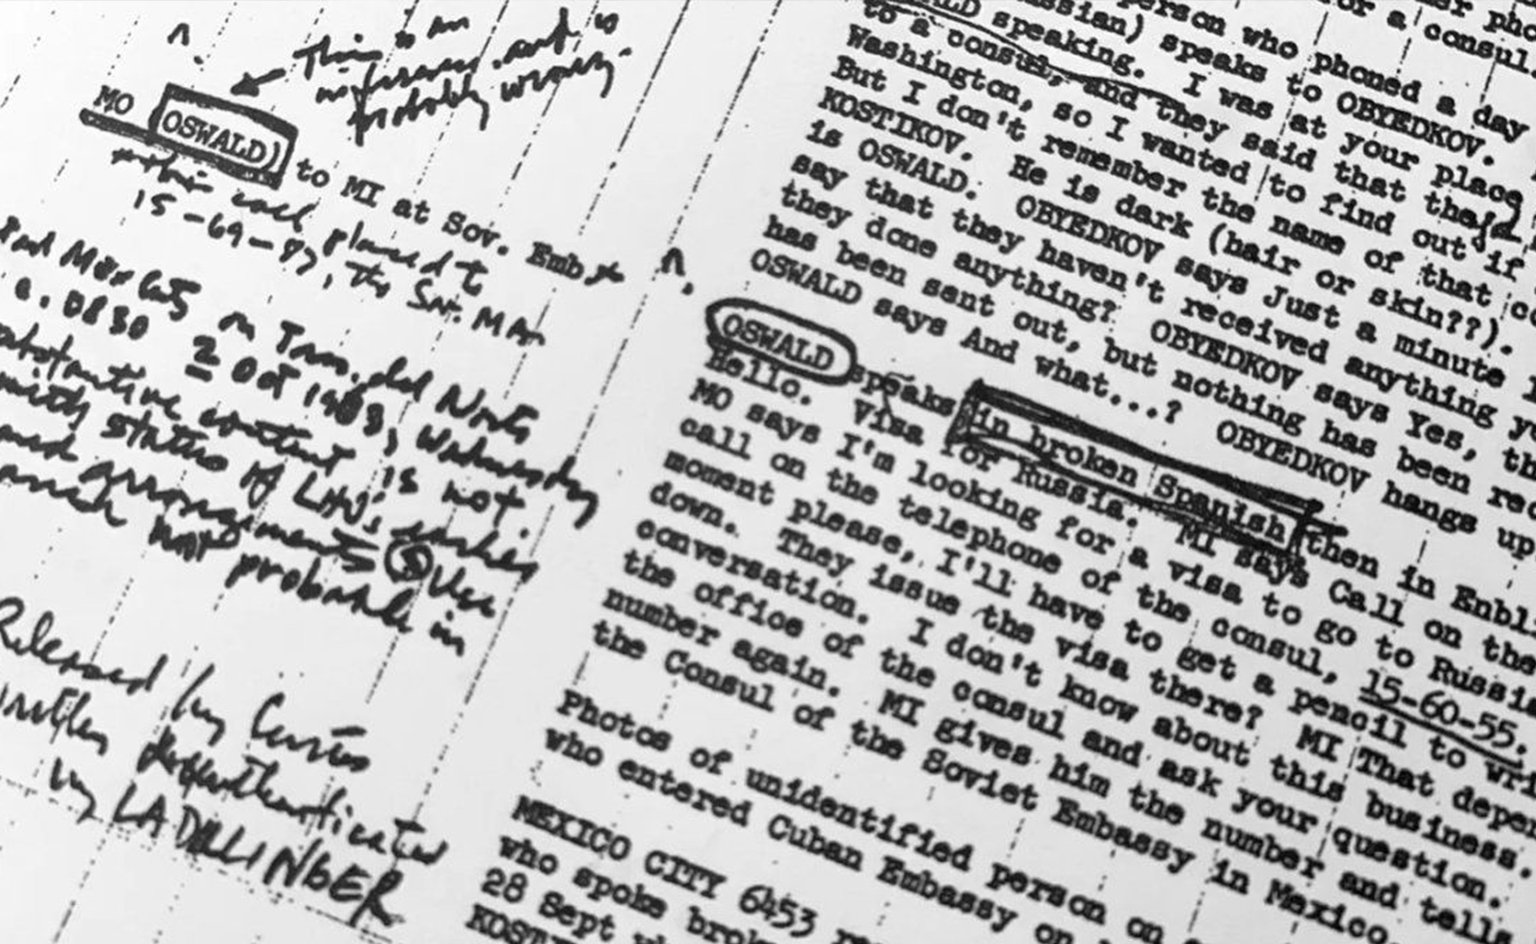 This is an
inference and is
probably wrong.
MO OSWALD) to MI at Sov. Emb
this call placed to
15-69-87, the Sov. MA
on Tran. dtd
0830 2 Oct 1963, Wednesday
substantive content is not
with status of
arrangements Use
not probable in
Released by
deauthenticated
by LADILLINGER
for a consul
person who phoned a day
ssian) speaks to OBYEDKOV.
ALD speaking. I was at your place
to a consul, and they said that they'd
Washington, so I wanted to find out if
But I don't remember the name of that
KOSTIKOV. He is dark (hair or skin??).
is OSWALD. OBYEDKOV says Just a minute
say that they haven't received anything
they done anything? OBYEDKOV says Yes,
has been sent out, but nothing has been
OSWALD says And what...? OBYEDKOV hangs up
OSWALD speaks in broken Spanish then in Enbli
Hello. Visa for Russia. MI says Call on the
MO says I'm looking for a visa to go to Russi
call on the telephone of the consul, 15-60-55.
moment please, I'll have to get a pencil to wri
down. They issue the visa there? MI That depen
conversation. I don't know about this business.
the office of the consul and ask your question.
number again. MI gives him the number and tells
the Consul of the Soviet Embassy in Mexico
Photos of unidentified person on
who entered Cuban Embassy on
MEXICO CITY 6453
who spoke brok
28 Sept
KOST